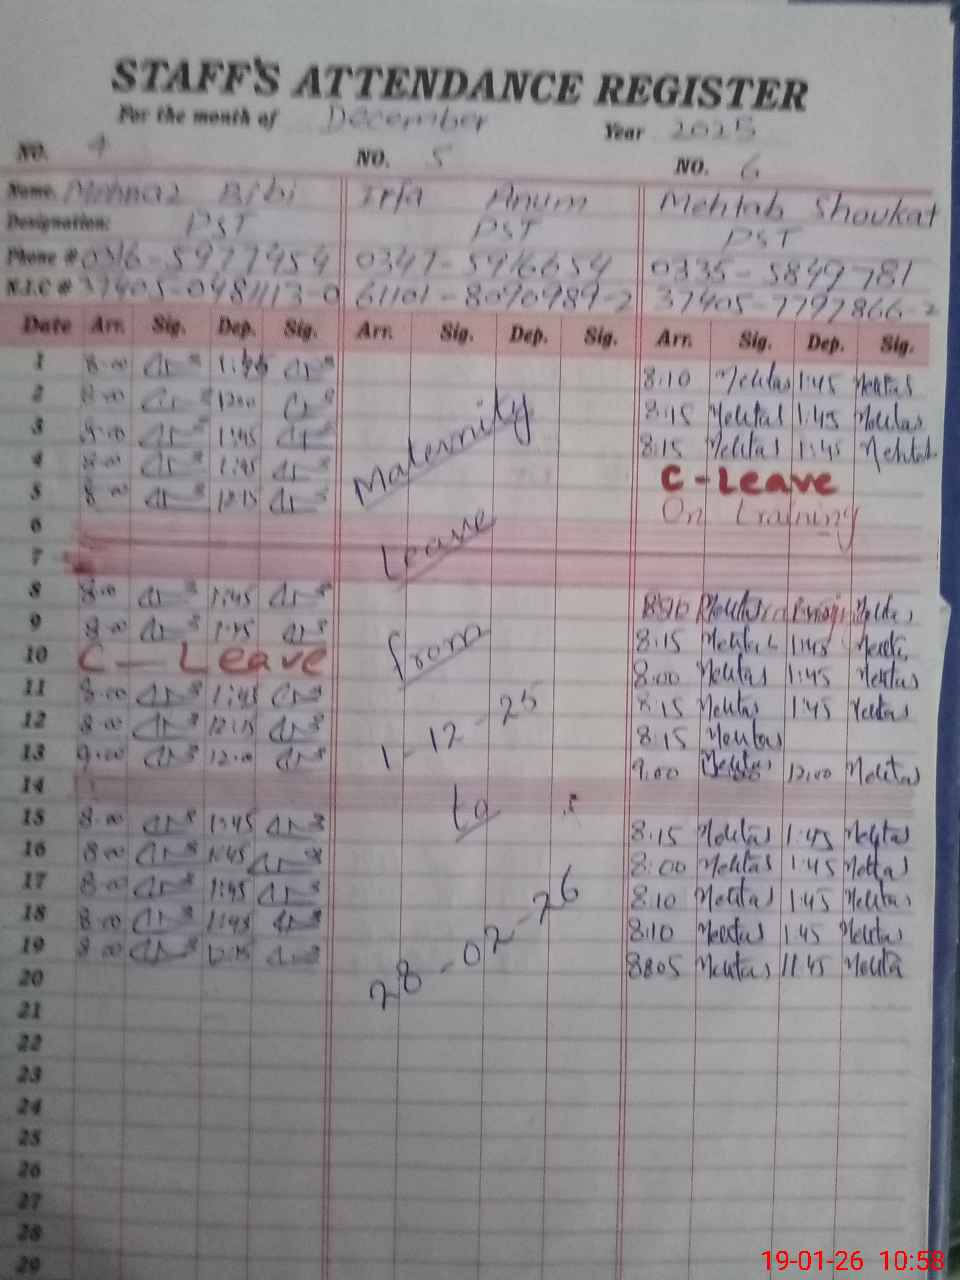 STAFF'S ATTENDANCE REGISTER
For the month of December Year 2025
NO. 4 NO. 5 NO. 6
Name. Mehnaz Bibi Irfa Anum Mehtab Shoukat
Designation: PST PST PST
Phone # 0316-5977454 0347-5916654 0335-5849781
N.I.C # 37405-0481113-0 61101-8090989-2 37405-7797866-2
Date Arr. Sig. Dep. Sig. Arr. Sig. Dep. Sig. Arr. Sig. Dep. Sig.
1 8:00 8:10 Mehtab 1:45 Mehtab
2 8:00 12:00 8:15 Mehtab 1:45 Mehtab
3 8:00 1:45 Maternity 8:15 Mehtab 1:45 Mehtab
4 8:00 1:45 C-Leave
5 8:00 12:15 On training
6 Leave
7
8 8:00 1:45 Mehtab
9 8:00 1:45 from 8:15 Mehtab 1:45
10 C-Leave 8:00 Mehtab 1:45 Mehtab
11 8:00 1:45 1-12-25 8:15 Mehtab 1:45 Mehtab
12 8:00 12:15 8:15 Mehtab
13 9:00 12:00 9:00 Mehtab 12:00 Mehtab
14
15 8:00 1:45 to 8:15 Mehtab 1:45 Mehtab
16 8:00 1:45 8:00 Mehtab 1:45 Mehtab
17 8:00 1:45 8:10 Mehtab 1:45 Mehtab
18 8:00 1:45 28-02-26 8:10 Mehtab 1:45 Mehtab
19 8:00 12:15 8805 Mehtab 11:45 Mehtab
20
21
22
23
24
25
26
27
28
29
19-01-26 10:58